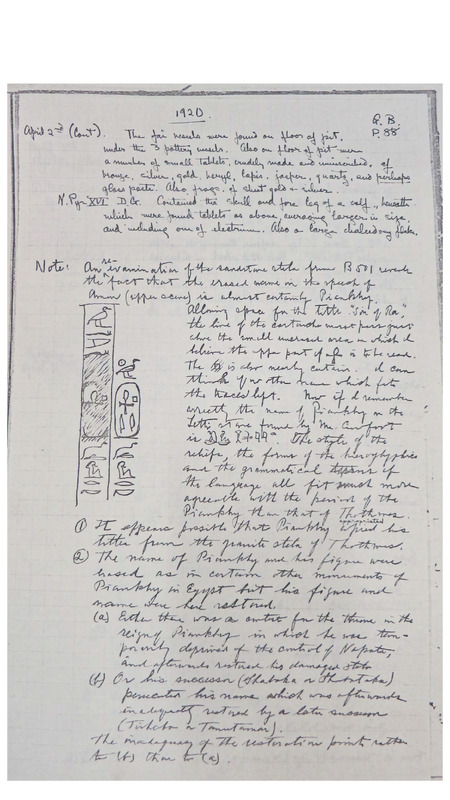 1920.
G. B.
P. 88
April 2nd (Cont). The fai vessels were found on floor of pit,
under the 3 pottery vessels. Also on floor of pit were
a number of small tablets, crudely made and uninscribed, of
bronze, silver, gold, beryl, lapis, jasper, quartz, and perhaps
glass paste. Also frags. of sheet gold & silver.
N. Pyr XVI D. G. Contained the skull and fore leg of a calf, beneath
which were found tablets as above, averaging larger in size,
and including one of electrum. Also a large chalcedony flake.
Note: An re-examination of the sandstone stela from B 501 reveals
the fact that the erased name in the speech of
Amon (upper scene) is almost certainly Piankhy.
Allowing space for the title "Son of Ra",
the line of the cartouche must pass just
above the small unerased area in which I
believe the upper part of is to be seen.
The is also nearly certain. I can
think of no other name which fits
the traces left. Now if I remember
correctly the name of Piankhy on the
stela found by Mr.
is The style of the
reliefs, the forms of the hieroglyphics
and the grammatical of
the language all fit much more
agreeable with the period of the
Piankhy than that of Thothmes
① It appears possible that Piankhy his
titles from the granite stela of Thothmes.
② The name of Piankhy and his figure were
erased as in certain other monuments of
Piankhy in Egypt but his figure and
name were here restored.
(a) Either there was a contest for the throne in the
reign of Piankhy in which he was tem-
porarily deprived of the control of Napata,
and afterwards restored his damaged stela
(b) Or his successor (Shabaka or Shabataka)
his name which was afterwards
inadequately restored by a later successor
(Tirhaka or Tanutaman).
The inadequacy of the restoration points rather
to (b) than to (a).